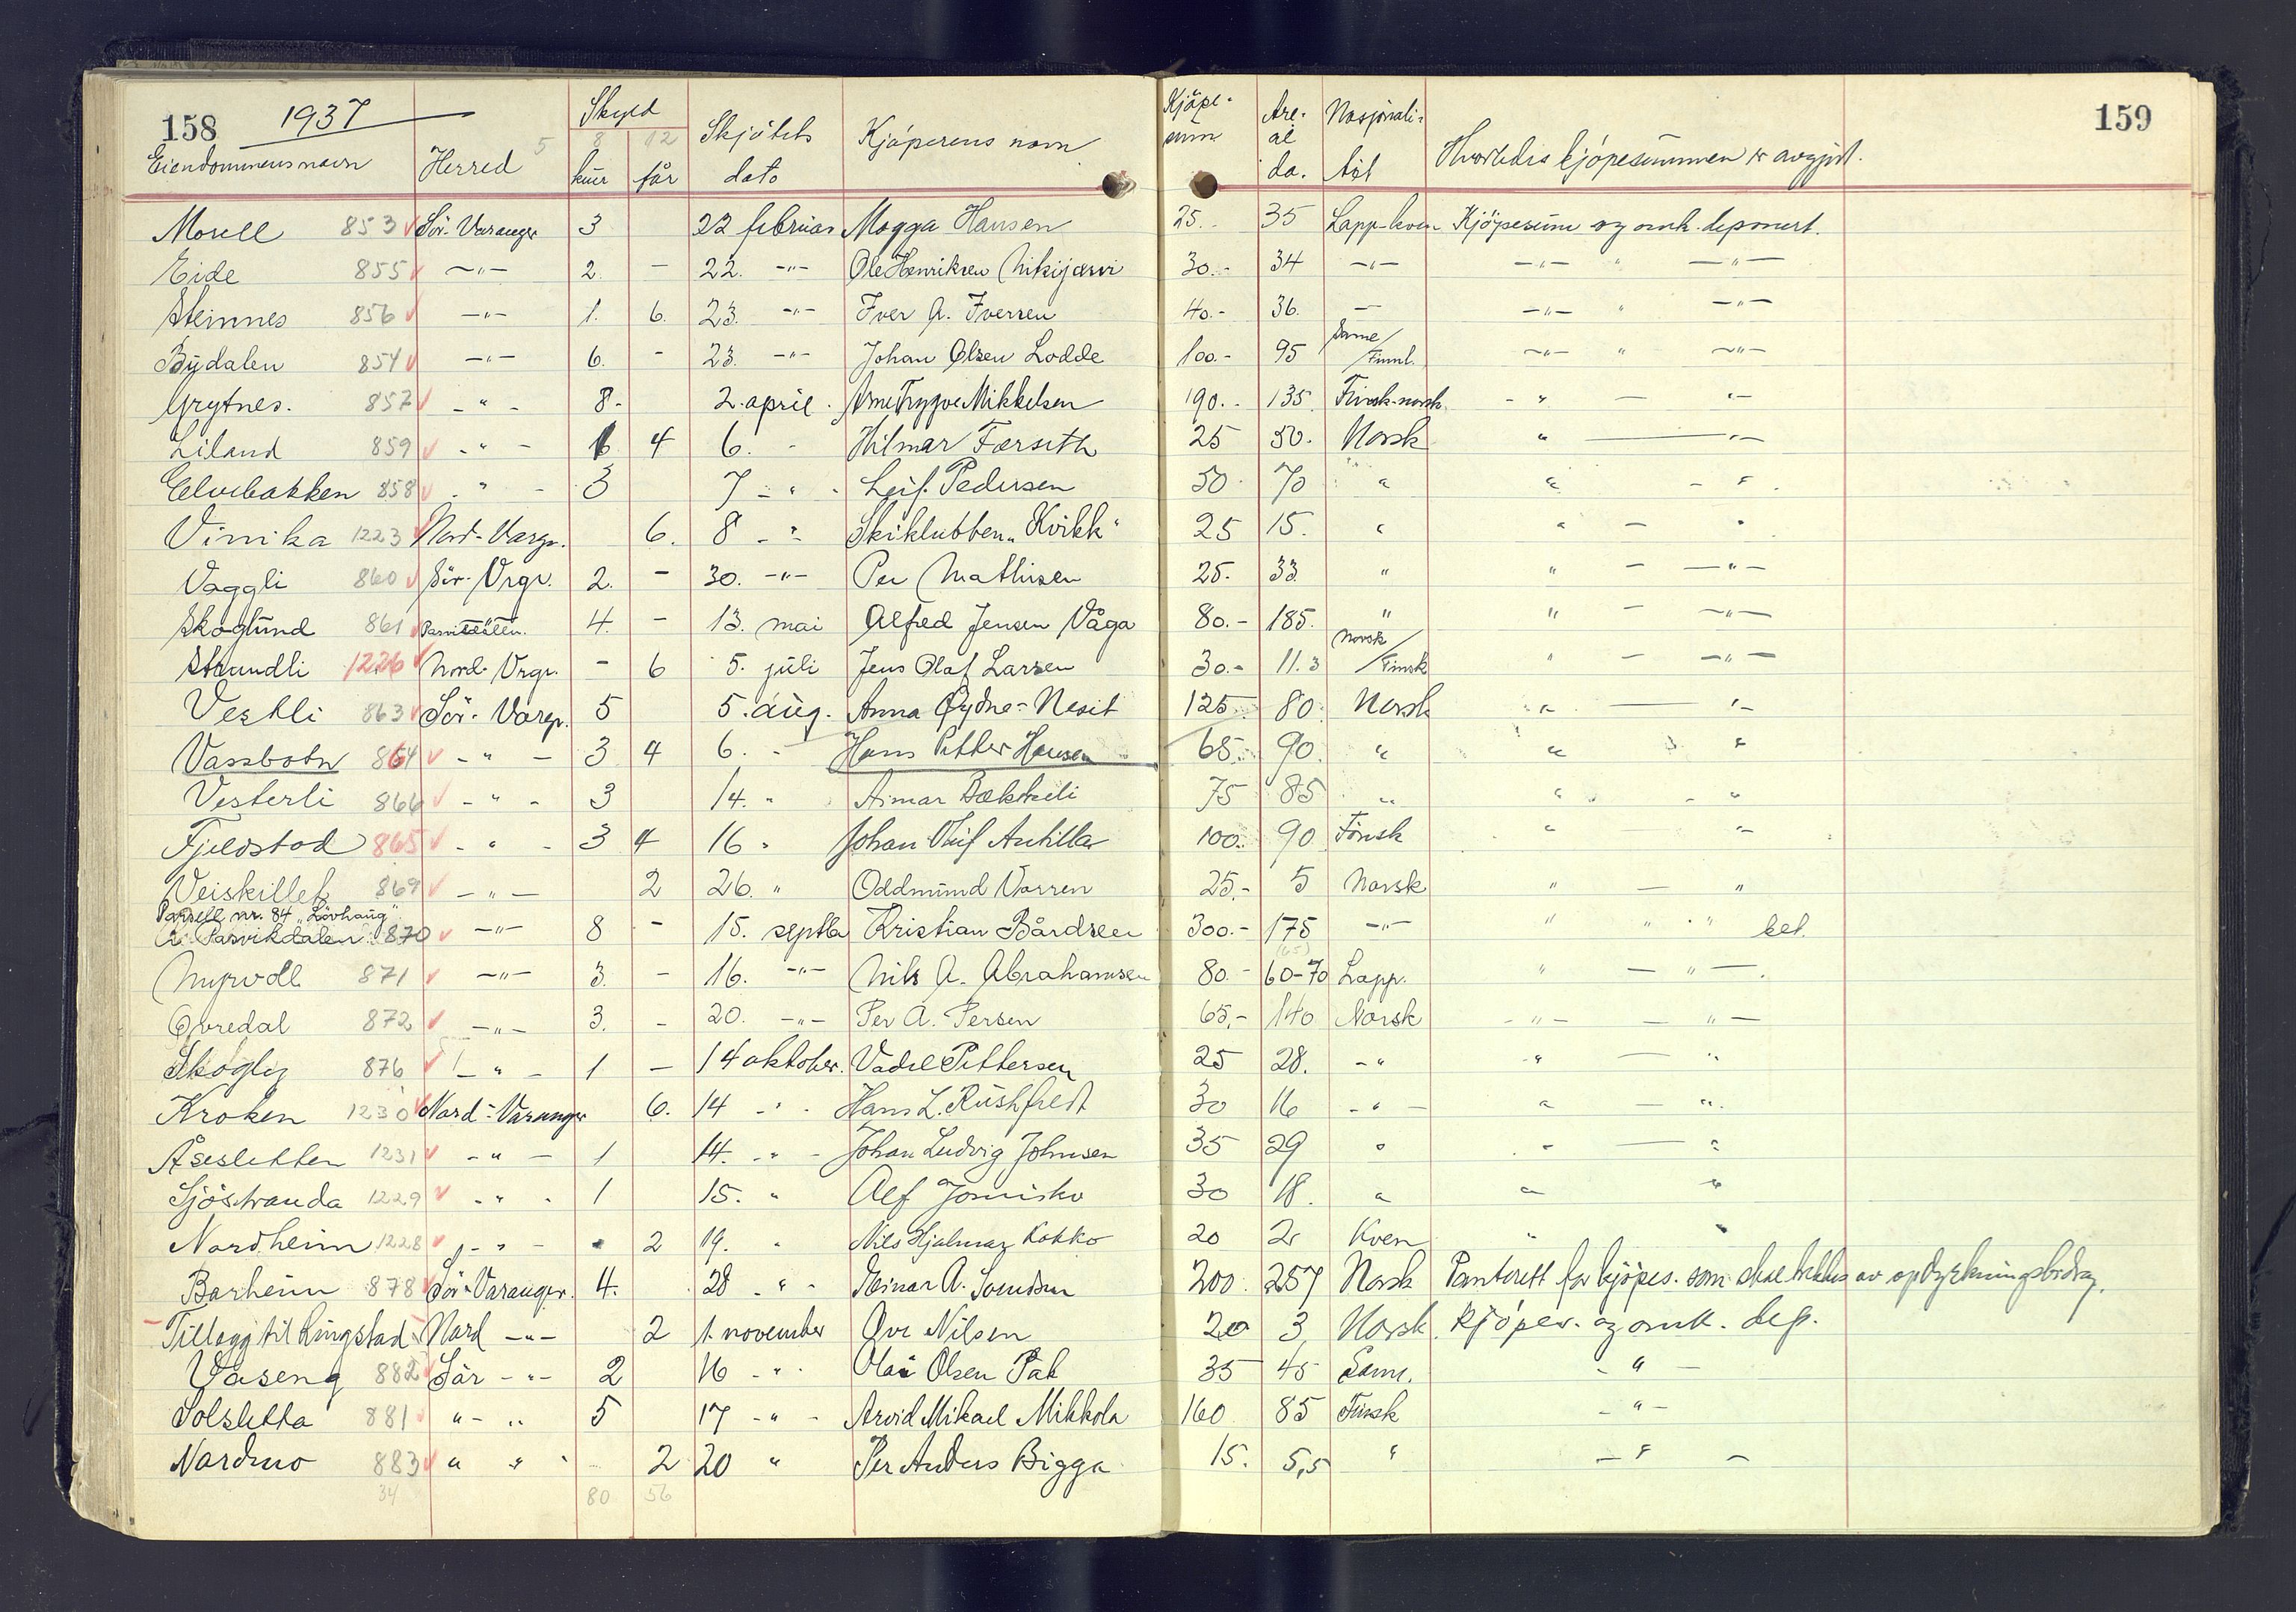 158 1937 159
Eiendommens navn Herred 5 Skyld kuer 8 får 12 Skjötets dato Kjöperens navn Kjöpe-sum Are-al da. Nasjonali-tet Hvorledes kjöpesummen er avgjort.
Morell 853 Sör-Varanger 3 22 februar Magga Hansen 25.- 35 Lapp-kven Kjöpesum og omk. deponert.
Eide 855 -"- 2. - 22. -"- Ole Henriksen Nikijærvi 30.- 34 -"- -"- " -"-
Steinnes 856 -"- 1. 6. 23. -"- Iver A. Iversen 40.- 36. - -"- " -"-
Bydalen 854 -"- 6. - 23. -"- Johan Olsen Lodde 100.- 95 Same/Finnl. -"- " -"-
Grytnes. 857 -"- 8- 2. april. Arne Trygve Mikkelsen 190.- 135 Finsk-norsk. -"- - "-
Liland 859 -"- 6 4 6. - Hilmar Forseth 25 50. Norsk " - "-
Elvebakken 858 -"- 3 7 -"- Leif Pedersen 50 70 " " - "
Vinika 1223 Nord-Vargr. 6. 8 -"- Skiklubben „Kvikk" 25 15. " " - "
Vaggli 860 Sör-Vrgr. 2. - 30. -"- Per Mathisen 25. 33 " " - -"-
Skoglund 861 Pasvikdalen. 4. - 13. mai Alfred Jensen Våga 80.- 185. " " - -"-
Strandli 1226 Nord-Vrgr. - 6 5. juli Jens Olaf Larsen 30.- 11.3 Norsk/Finsk " - -"-
Vestli 863 Sör-Vargr. 5 5. aug. Anna Öydne-Nesit 125 80. Norsk " - "-
Vassbotn 864 -"- 3 4 6. - Hans Petter Hansen 65. 90. " " "
Vesterli 866 -"- 3 14. " Aimar Bækkeli 75 85 " " - "
Fjeldstad 865 -"- 3 4 16 " Johan Olif Antilla 100. 90 Finsk " "
Veiskillet 869 -"- 2 26. " Oddmund Varren 25.- 5 Norsk " - "
Parsell nr. 84 „Lövhaug"
i Pasvikdalen 870 -"- 8 - 15. septbr Kristian Bårdsen 300.- 175 -"- " " " bet.
Myrvoll 871 -"- 3. - 16. -"- Nils A. Abrahamsen 80.- 60-70 (65) Lapp. " - " -.
Övredal 872 -"- 3. - 20. -"- Per A. Persen 65,- 140 Norsk -"- - " -
Skogly 876 -"- 1 - 14 oktober. Vadel Pettersen 25 28. -" -" - "
Kroken 1230 Nord-Varanger 6. 14 -"- Hans L. Rushfeldt 30 16 -"- " - ".
Åsesletten 1231 -"- 1 14. -"- Johan Ludvig Johnsen 35 29 " - - "
Sjöstranda 1229 -"- 1 15. " Alf Jomisko 30 18. " " "
Nordheim 1228 -"- 2 19. " Nils Hjalmar Kokko 20 2 Kven " "
Barheim 878 Sör-Varanger. 4. 28 -"- Einar A. Svendsen 200 257 Norsk Panterett for kjöpes. som skal trekkes av opdyrkningsbidrag.
Tillegg til Ringstad Nord -"- 2 1. november Ove Nilsen 20 3 Norsk Kjöpes. og omk. dep.
Vaseng 882 Sör -"- 2 16 -"- Olai Olsen Pak 35 45 Same. -"-
Solsletta 881 "-" 5 17 -"- Arvid Mikael Mikkola 160 85 Finsk -"-
Nordmo 883 " " 2 20 " Per Anders Bigga 15. 5,5 " -"-
34 80 56